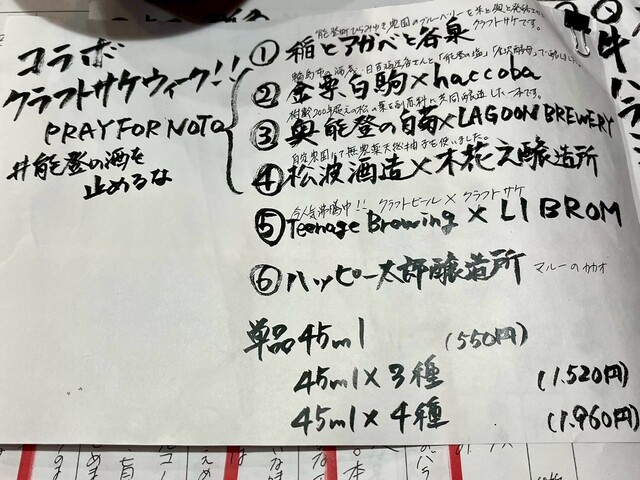 コラボ
クラフトサケウィーク!!
PRAY FOR NOTO
#能登の酒を
止めるな
能登町ひらみゆき農園のブルーベリーを米と麹と発酵させた
クラフトサケです。
① 稲とアガベと谷泉
② 金紫白駒×haccoba
樹齢200年超えの松の葉を副原料に共同醸造した一本です。
③ 奥能登の白菊×LAGOON BREWERY
自産農園にて無農薬天然柚子を使いました。
④ 松波酒造×木花之醸造所
今人気沸騰中!! クラフトビール×クラフトサケ
⑤ Teenage Brewing × LIBROM
⑥ ハッピー太郎醸造所 マルーのカカオ
単品45ml (550円)
45ml×3種 (1.520円)
45ml×4種 (1.960円)